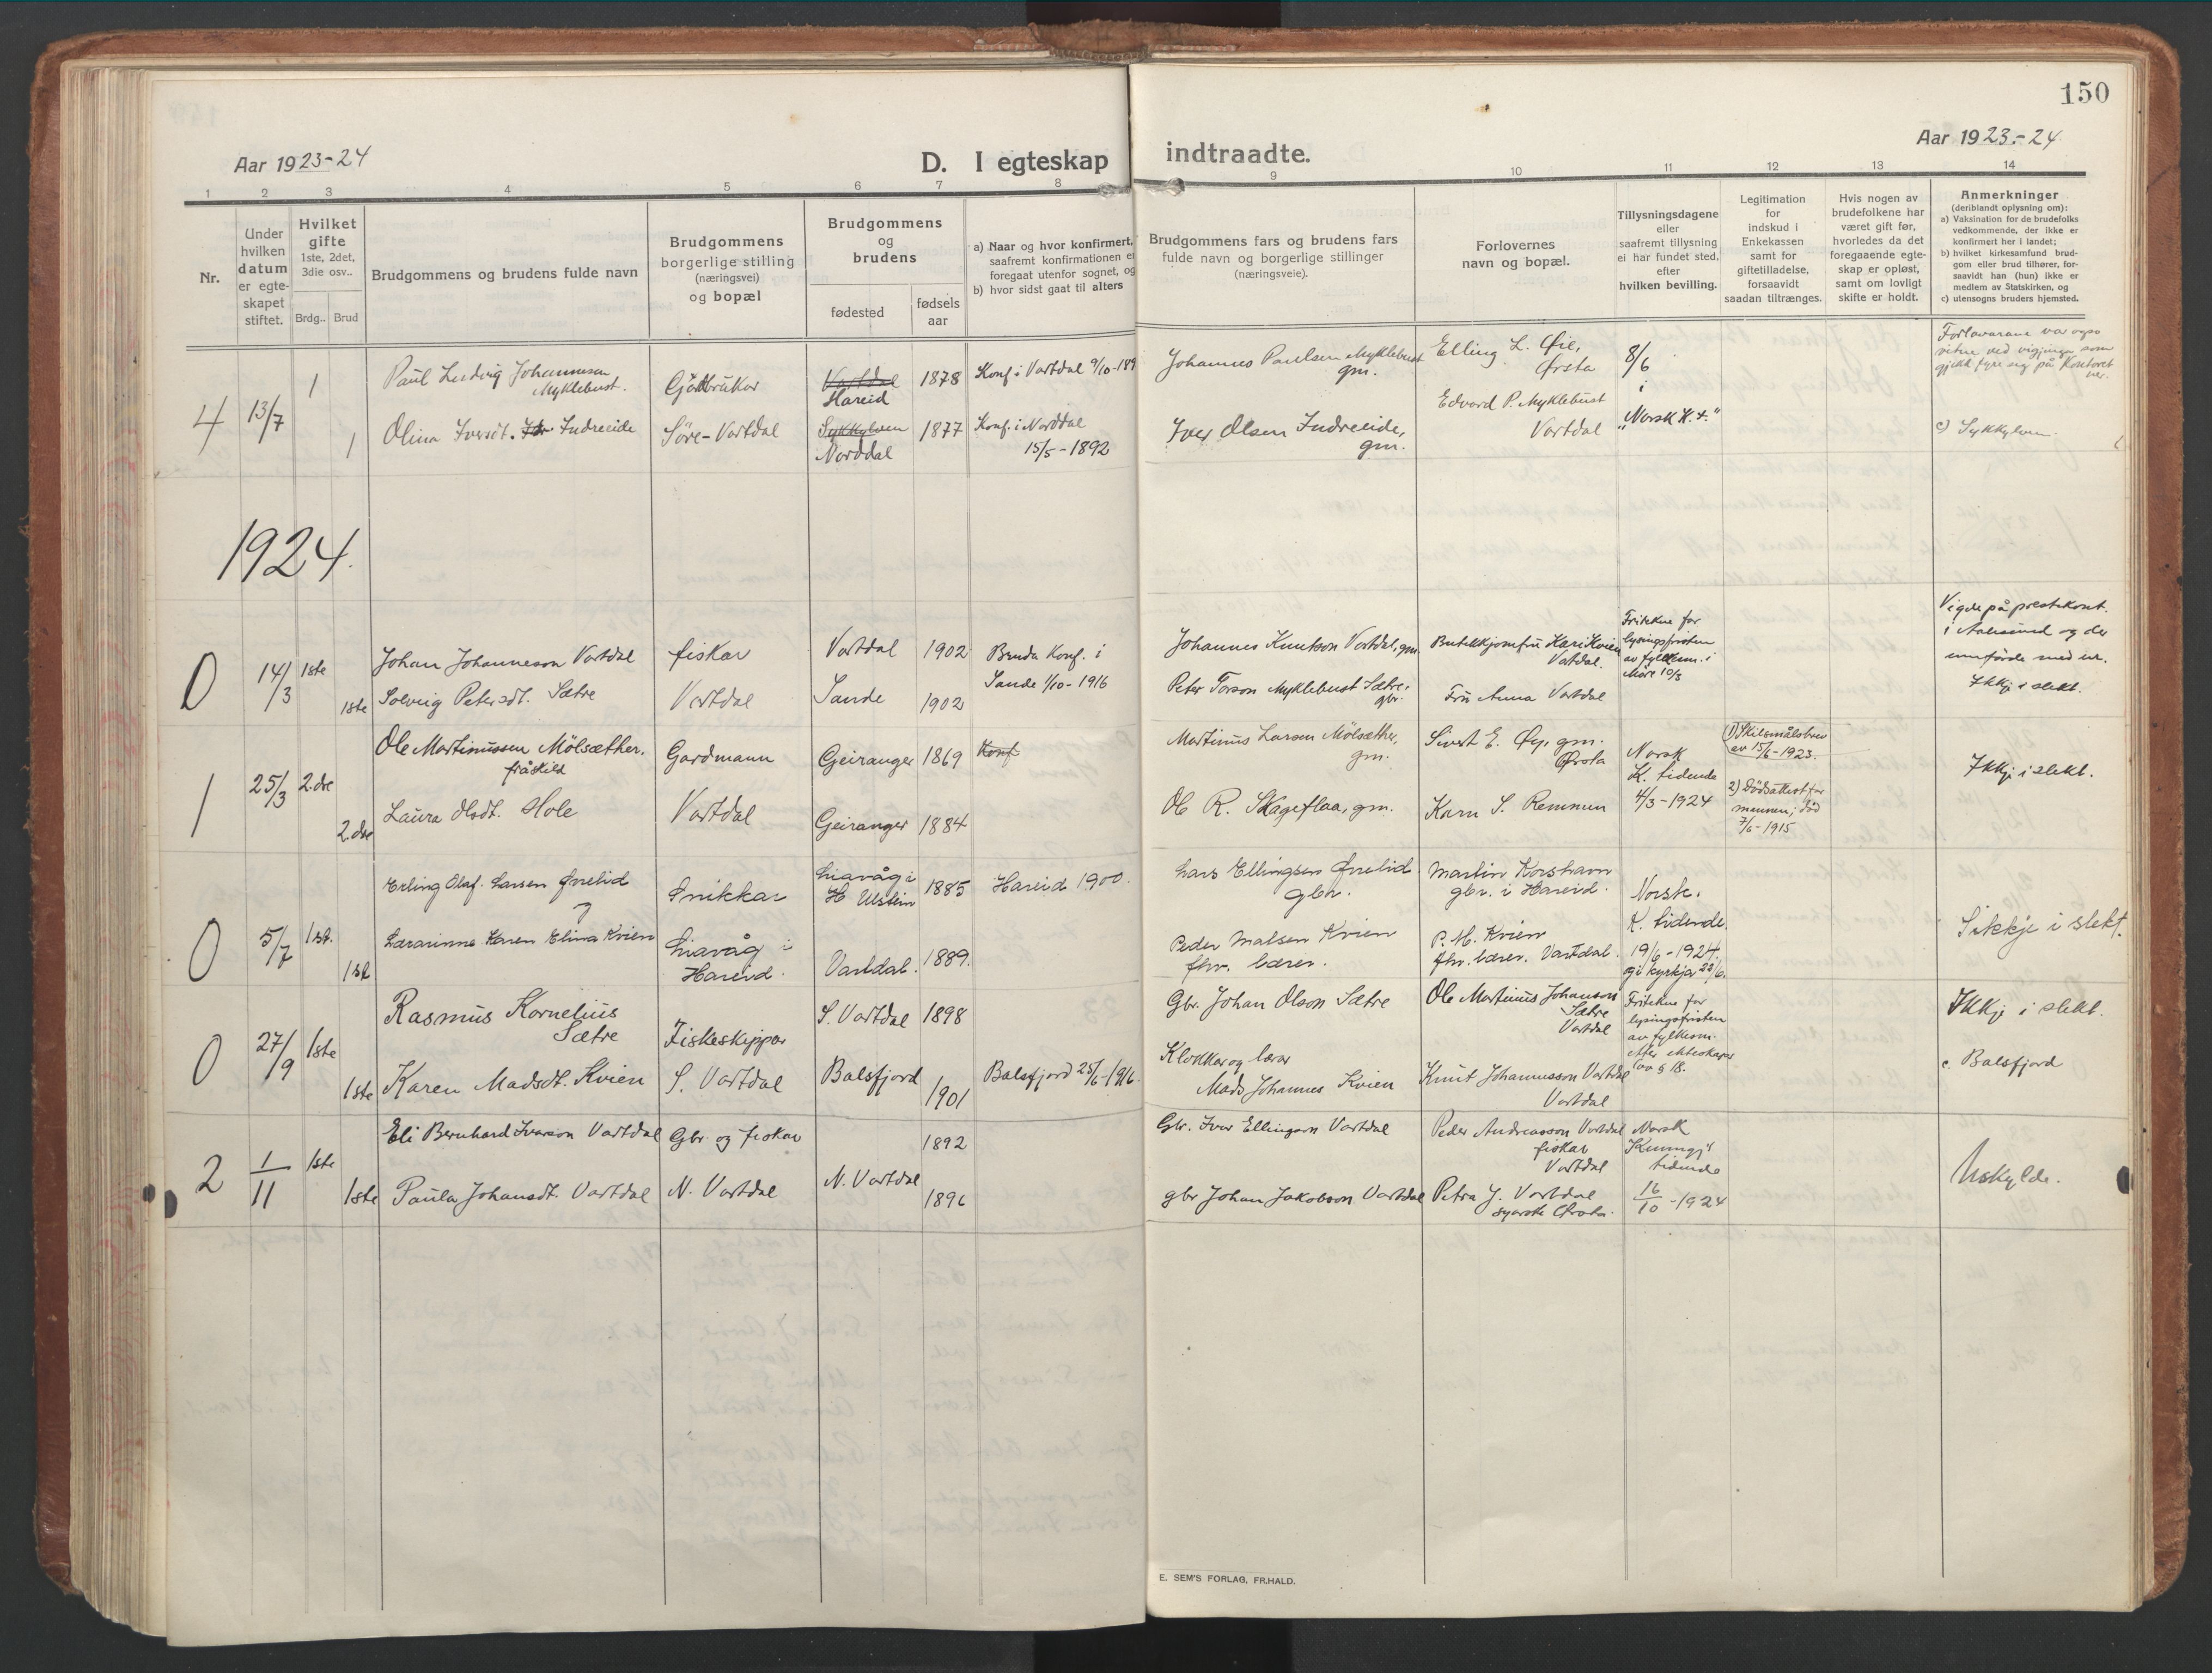 150
Aar 1923-24
D. I egteskap
indtraadte.
Aar 1923.-24
1 2 3 4 5 6 7 8 9 10 11 12 13 14
Nr.
Under
hvilken
datum
er egte-
skapet
stiftet.
Hvilket
gifte
1ste, 2det,
3die osv..
Brdg.. Brud
Brudgommens og brudens fulde navn
Brudgommens
borgerlige stilling
(næringsvei)
og bopæl
Brudgommens
og
brudens
fødested
fødsels
aar
a) Naar og hvor konfirmert,
saafremt konfirmationen e
foregaat utenfor sognet, og
b) hvor sidst gaat til alters
Brudgommens fars og brudens fars
fulde navn og borgerlige stillinger
(næringsveie).
Forlovernes
navn og bopæl.
Tillysningsdagene
eller
saafremt tillysning
ei har fundet sted,
efter
hvilken bevilling.
Legitimation
for
indskud i
Enkekassen
samt for
giftetilladelse,
forsaavidt
saadan tiltrænges.
Hvis nogen av
brudefolkene har
været gift før,
hvorledes da det
foregaaende egte-
skap er opløst,
samt om lovligt
skifte er holdt.
Anmerkninger
(deriblandt oplysning om):
a) Vaksination for de brudefolks
vedkommende, der ikke er
konfirmert her i landet;
b) hvilket kirkesamfund brud-
gom eller brud tilhører, for-
saavidt han (hun) ikke er
medlem av Statskirken, og
c) utensogns bruders hjemsted.
4
13/7
1
Paul Ludvig Johannesen
Myklebust.
Gardbrukar
Vartdal
Hareid
1878
Konf. i Vartdal 9/10-189
Johannes Paulsen Myklebust
gm.
Elling L. Øie,
Ørsta
8/6
i
"Norsk K.t."
Forlovarane var ogso
vitne ved vigjinga som
gjekk fyre seg på Kontoret
1
Olina Iversdt. Indreeide
Søre-Vartdal
Sykkylven
Norddal
1877
Konf. i Norddal
15/5-1892
Iver Olsen Indreeide,
gm.
Edvard P. Myklebust
Vartdal
c) Sykkylven.
1924.
0
14/3
1ste
Johan Johanneson Vartdal
fiskar
Vartdal
1902
Bruda Konf. i
Sande 1/10-1916
Johannes Knutson Vartdal, gm.
Butikkjomfru Kari Kvien
Vartdal.
Fritekne for
lysingsfristen
av fylkesm. i
Møre 10/3
Vigde på prestekont.
i Aalesund og der
innførde med nr.
Ikkj i slekt.
1ste
Solveig Petersdt. Sætre
Vartdal
Sande
1902
Peter Torson Myklebust Sætre,
gbr.
Fru Anna Vartdal
1
25/3
2.dre
Ole Martinussen Mölsæther.
fråskild
Gardmann
Geiranger
1869
Konf
Martinus Larsen Mölsæther,
gm.
Sivert E. Øy, gm.
Ørsta
Norsk
K. tidende
4/3-1924
1) Skilsmålsbrev
av 15/6-1923.
2) Dödsattest for
mannen; död
7/6-1915
Ikkj i slekt.
2.dre
Laura Olsdt. Hole
Vartdal
Geiranger
1884
Ole R. Skageflaa, gm.
Karn S. Remmen
0
5/7
1st.
Erling Olaf. Larsen Øvrelid
Snikkar
Liavåg i
H Ulstein
1885
Hareid 1900.
Lars Ellingsen Øvrelid
gbr.
Martin Korshavn
gbr. i Hareid.
Norsk.
K. tidende.
19/6-1924.
og i kyrkja 22/6.
Sikkje i slekt.
1st
Lærarinne Karen Elina Kvien
Liavåg i
Hareid.
Vartdal.
1889.
Peder Matsen Kvien
fhv. lærer.
P. M. Kvien
fhv. lærer. Vartdal.
0
27/9
1ste
Rasmus Kornelius
Sætre
Fiskeskippar
S. Vartdal
1898
Gbr. Johan Olson Sætre
Ole Martinus Johanson
Sætre
Vartdal
Fritekne for
lysingsfristen
av fylkesm.
etter ekteskaps
lova § 18.
Ikkj i slekt.
1ste
Karen Madsdt. Kvien
S. Vartdal
Balsfjord
1901
Balsfjord 25/6-1916.
Klokkar og lærar
Mads Johannes Kvien
Knut Johannesson Vartdal
Vartdal
c. Balsfjord
2
1/11
1ste
Eli Bernhard Ivarson Vartdal
Gbr. og fiskar
N. Vartdal
1892
Gbr. Ivar Ellingson Vartdal
Peder Andreasson Vartdal
fiskar
Vartdal
Norsk
Kunngj.
tidende
16/10-1924
Uskylde.
1ste
Paula Johansdt. Vartdal
N. Vartdal
1896
gbr Johan Jakobson Vartdal
Petra J. Vartdal
Ørsta.
E. SEM'S FORLAG, FR.HALD.